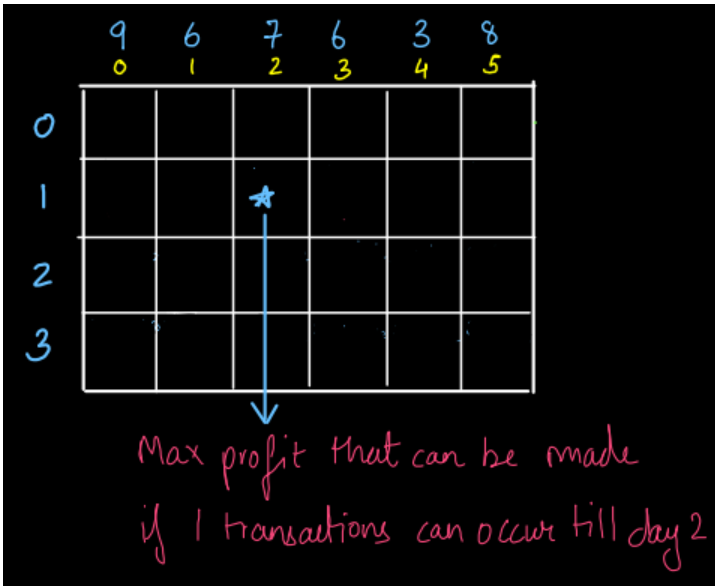 9 6 7 6 3 8
0 1 2 3 4 5
0
1
2
3
Max profit that can be made
if 1 transactions can occur till day 2